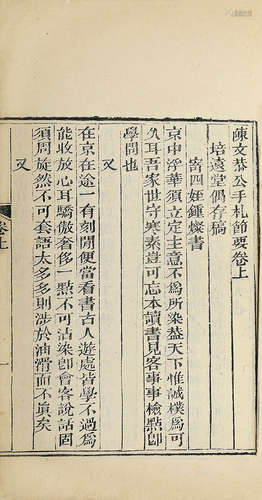 陳文恭公手札節要卷上
培遠堂偶存稿
寄四姪鍾燦書
京中浮華須立定主意不爲所染葢天下惟誠樸爲可
久耳吾家世守寒素豈可忘本讀書見客事事檢點卽
學問也
又
在京在途一有刻閒便當看書古人遊處皆學不過爲
能收放心耳驕傲奢侈一點不可沾染卽會客說話固
須周旋然不可套語太多多則涉於油滑而不眞矣
又
卷上